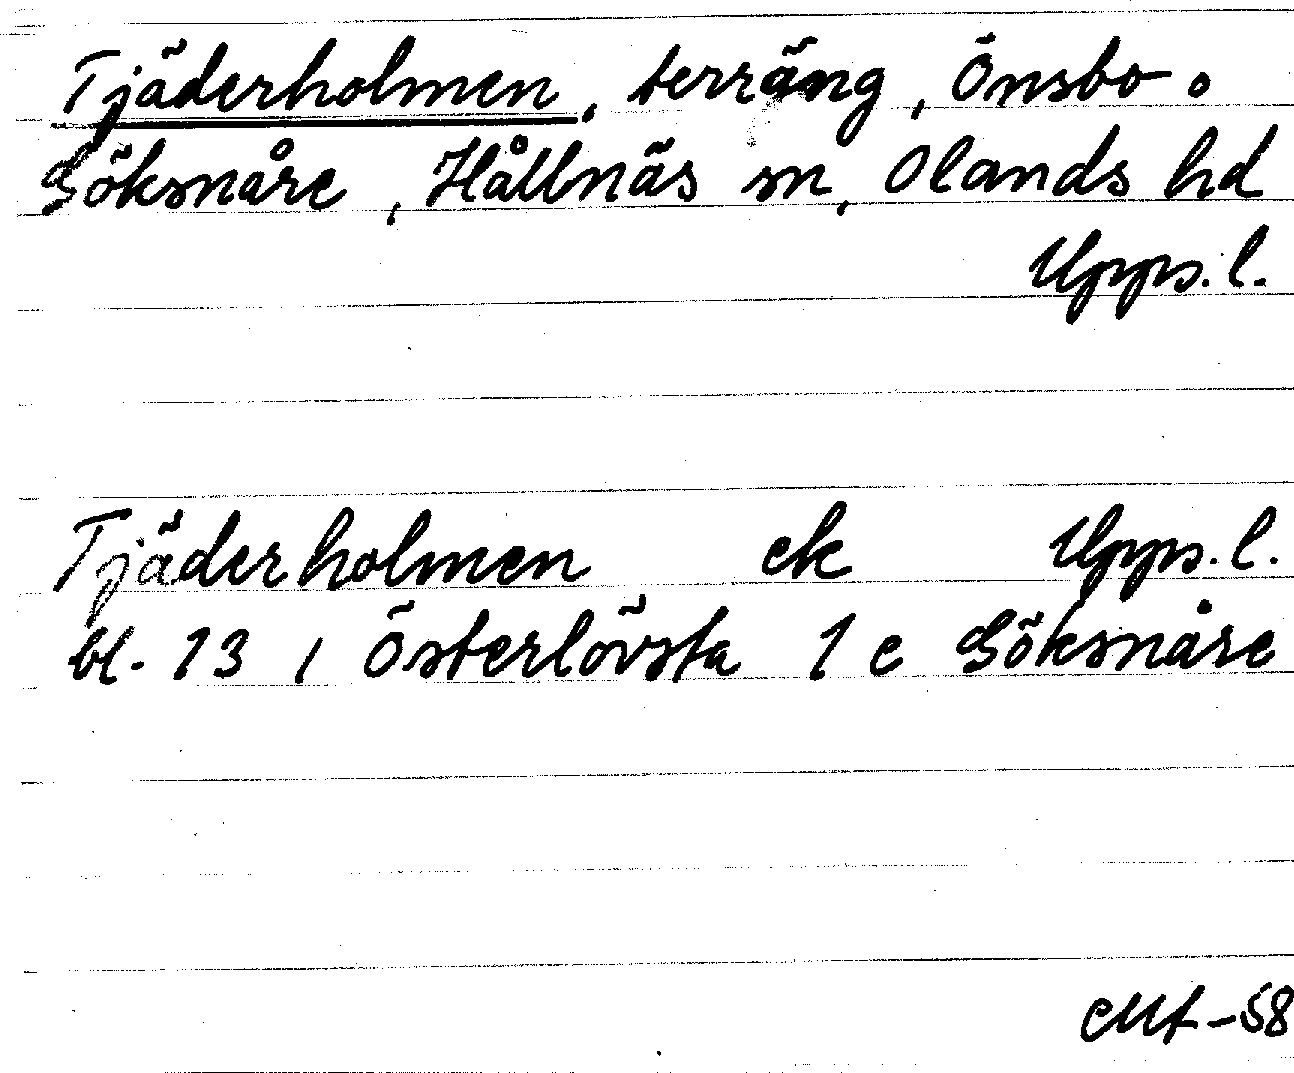 Tjäderholmen, terräng, Önsbo o
Göksnåre, Hållnäs sn, Olands hd
Upps. l.
Tjäderholmen ek Upps. l.
bl. 13, Österlövsta 1 e Göksnåre
-58